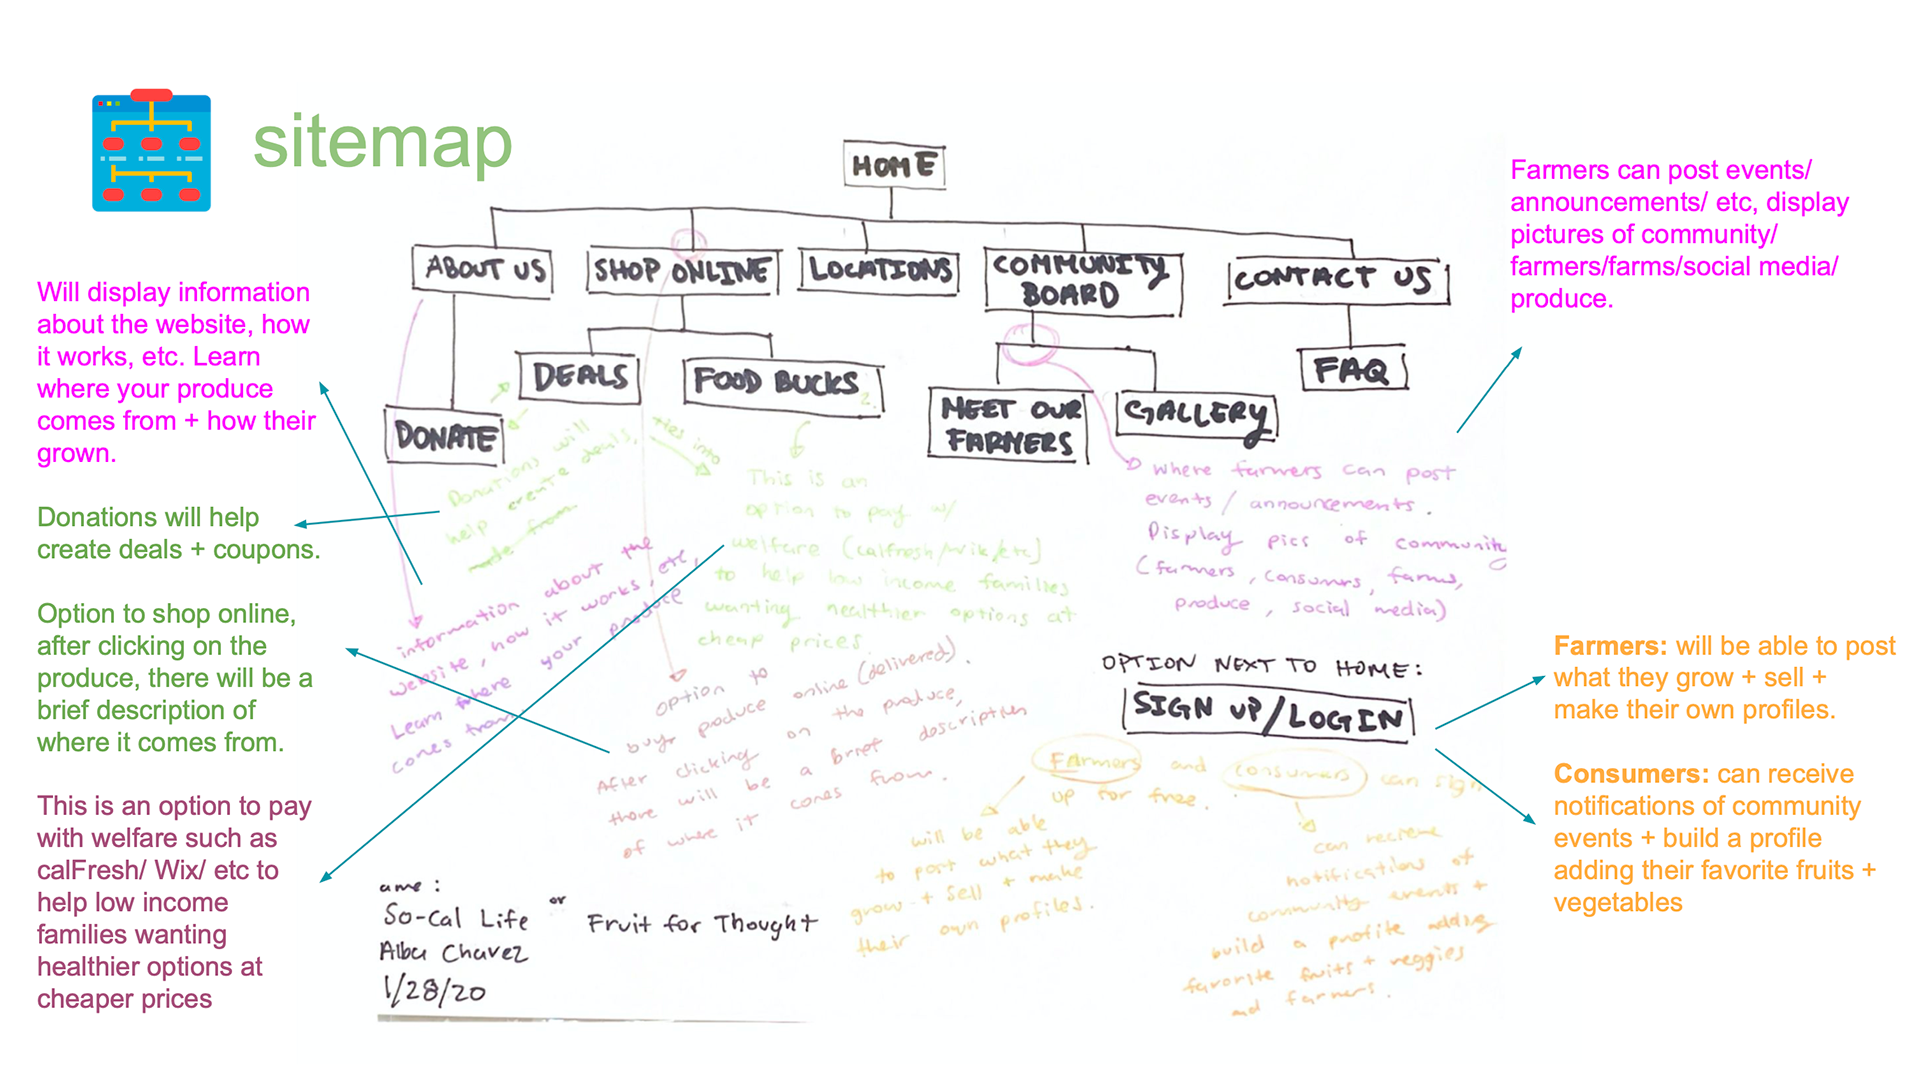 sitemap
HOME
ABOUT US
SHOP ONLINE
LOCATIONS
COMMUNITY
BOARD
CONTACT US
DONATE
DEALS
FOOD BUCKS
2.
MEET OUR
FARMERS
GALLERY
FAQ
Will display information
about the website, how
it works, etc. Learn
where your produce
comes from + how their
grown.
Donations will help
create deals + coupons.
Option to shop online,
after clicking on the
produce, there will be a
brief description of
where it comes from.
This is an option to pay
with welfare such as
calFresh/ Wix/ etc to
help low income
families wanting
healthier options at
cheaper prices
Donations will
help create deals,
from.
ties into
This is an
option to pay w/
welfare (calfresh/wik/etc)
to help low income families
wanting healthier options at
cheap prices.
information about the
website, how it works, etc,
Learn where your produce
comes from
option to
buy produce online (delivered).
After clicking on the produce,
there will be a brief description
of where it comes from.
where farmers can post
events/ announcements.
Display pics of community
(farmers, consumers, farms,
produce, social media)
OPTION NEXT TO HOME:
SIGN UP/LOGIN
Farmers and consumers can sign
up for free.
will be able
to post what they
grow + sell + make
their own profiles.
can receive
notifications of
community events +
build a profile adding
favorite fruits + veggies
and farmers.
ame:
So-Cal Life or Fruit for Thought
Alba Chavez
1/28/20
Farmers can post events/
announcements/ etc, display
pictures of community/
farmers/farms/social media/
produce.
Farmers: will be able to post
what they grow + sell +
make their own profiles.
Consumers: can receive
notifications of community
events + build a profile
adding their favorite fruits +
vegetables